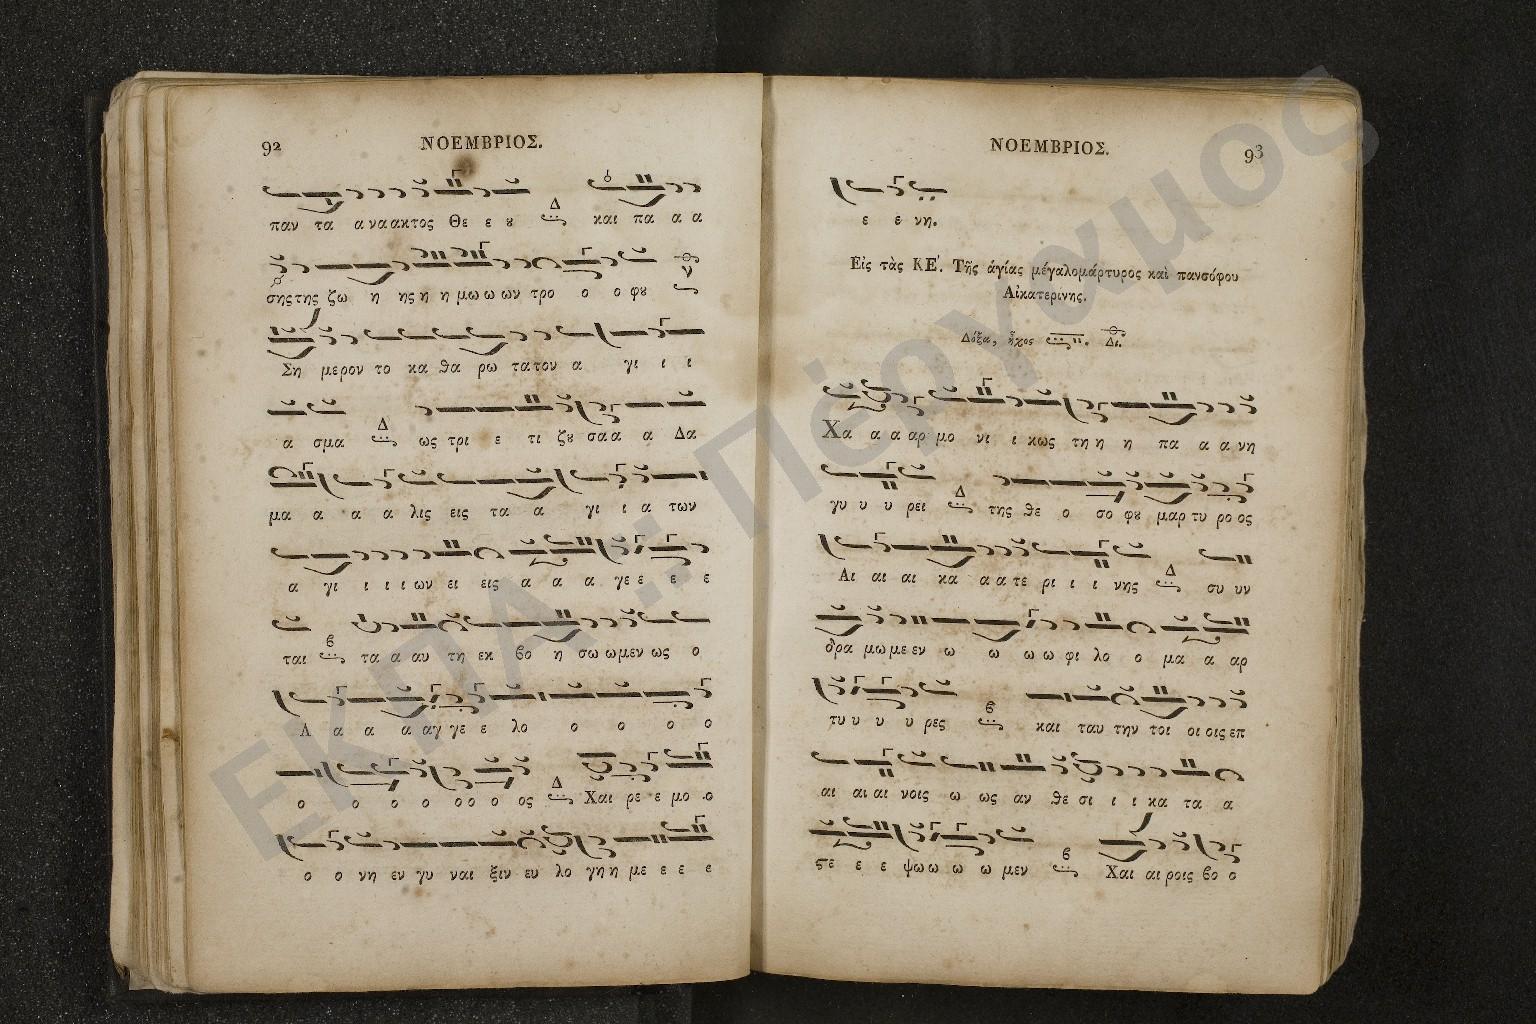 92
ΝΟΕΜΒΡΙΟΣ.
παν τα α να ακτος Θε ε ȣ Δ και πα α α
σης της ζω η ης η η μω ω ων τρο ο ο φȣ
Ση μερον το κα θα ρω τα τον α γι ι ι
α σμα Δ ως τρι ε τι ζȣ σα α α Δα
μα α α α λις εις τα α γι ι α των
α γι ι ι ι ων ει εις α α α γε ε ε ε
ται ϐ τα α αυ τη εκ ϐο η σω ωμεν ως ο
Α α α α αγ γε ε λο ο ο ο ο
ο ο ο ο ο ο ο ος Δ Χαι ρε ε μο ο
ο ο νη εν γυ ναι ξιν ευ λο γη η με ε ε ε
ΝΟΕΜΒΡΙΟΣ.
93
ε ε νη.
Εἰς τὰς ΚΕ΄. Τῆς ἁγίας μέγαλομάρτυρος καὶ πανσόφου
Αἰκατερινης.
Δόξα, ἦχος Δι.
Χα α α αρ μο νι ι κως τη η η πα α α νη
γυ υ υ ρει Δ της θε ο σο φȣ μαρ τυ ρο ος
Αι αι αι κα α α τε ρι ι ι νης Δ συ υν
δρα μω με εν ω ω ω ω φι λο ο μα α αρ
τυ υ υ υ ρες ϐ και ταυ την τοι οι οις επ
αι αι αι νοις ω ως αν θε σι ι ι κα τα α
ϛε ε ε ψω ω ω ω μεν ϐ Χαι αι ροις ϐο ο
ΕΚΠΑ .: Πέργαμος